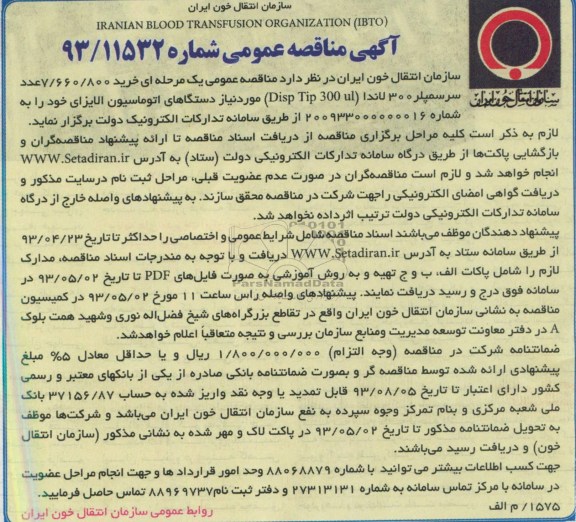 سازمان انتقال خون ایران
IRANIAN BLOOD TRANSFUSION ORGANIZATION (IBTO)
آگهی مناقصه عمومی شماره ۹۳/۱۱۵۳۲
سازمان انتقال خون ایران
سازمان انتقال خون ایران در نظر دارد مناقصه عمومی یک مرحله ای خرید ۷/۶۶۰/۸۰۰عدد
سرسمپلر ۳۰۰ لاندا (Disp Tip 300 ul) موردنیاز دستگاهای اتوماسیون الایزای خود را به
شماره ۲۰۰۹۳۳۰۰۰۰۰۰۰۱۶ از طریق سامانه تدارکات الکترونیک دولت برگزار نماید.
لازم به ذکر است کلیه مراحل برگزاری مناقصه از دریافت اسناد مناقصه تا ارائه پیشنهاد مناقصه‌گران و
بازگشایی پاکت‌ها از طریق درگاه سامانه تدارکات الکترونیکی دولت (ستاد) به آدرس WWW.Setadiran.ir
انجام خواهد شد و لازم است مناقصه‌گران در صورت عدم عضویت قبلی، مراحل ثبت نام درسایت مذکور و
دریافت گواهی امضای الکترونیکی راجهت شرکت در مناقصه محقق سازند. به پیشنهادهای واصله خارج از درگاه
سامانه تدارکات الکترونیکی دولت ترتیب اثرداده نخواهد شد.
پیشنهاد دهندگان موظف می‌باشند اسناد مناقصه شامل شرایط عمومی و اختصاصی را حداکثر تا تاریخ ۹۳/۰۴/۲۳
از طریق سامانه ستاد به آدرس WWW.Setadiran.ir دریافت و با توجه به مندرجات اسناد مناقصه، مدارک
لازم را شامل پاکات الف، ب و ج تهیه و به روش آموزشی به صورت فایل‌های PDF تا تاریخ ۹۳/۰۵/۰۲ در
سامانه فوق درج و رسید دریافت نمایند. پیشنهادهای واصله راس ساعت ۱۱ مورخ ۹۳/۰۵/۰۲ در کمیسیون
مناقصه به نشانی سازمان انتقال خون ایران واقع در تقاطع بزرگراه‌های شیخ فضل‌اله نوری وشهید همت بلوک
A در دفتر معاونت توسعه مدیریت ومنابع سازمان بررسی و نتیجه متعاقباً اعلام خواهدشد.
ضمانتنامه شرکت در مناقصه (وجه التزام) ۱/۸۰۰/۰۰۰/۰۰۰ ریال و یا حداقل معادل ۵% مبلغ
پیشنهادی ارائه شده توسط مناقصه گر و بصورت ضمانتنامه بانکی صادره از یکی از بانکهای معتبر و رسمی
کشور دارای اعتبار تا تاریخ ۹۳/۰۸/۰۵ قابل تمدید یا وجه نقد واریز شده به حساب ۳۷۱۵۶/۸۷ بانک
ملی شعبه مرکزی و بنام تمرکز وجوه سپرده به نفع سازمان انتقال خون ایران می‌باشد و شرکت‌ها موظف
به تحویل ضمانتنامه مذکور تا تاریخ ۹۳/۰۵/۰۲ در پاکت لاک و مهر شده به نشانی مذکور (سازمان انتقال
خون) و دریافت رسید می‌باشند.
جهت کسب اطلاعات بیشتر می توانید با شماره ۸۸۰۶۸۸۷۹ وحد امور قرارداد ها و جهت انجام مراحل عضویت
در سامانه با مرکز تماس سامانه به شماره ۲۷۳۱۳۱۳۱ و دفتر ثبت نام۸۸۹۶۹۷۳۷ تماس حاصل فرمایید.
۱۵۷۵/ م الف
روابط عمومی سازمان انتقال خون ایران
ParsNamadData